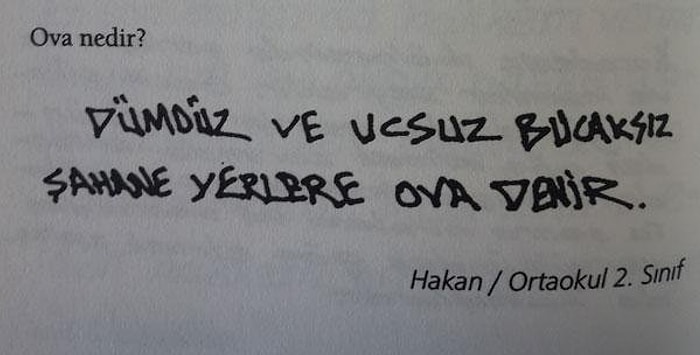 Ova nedir?
DÜMDÜZ VE UCSUZ BUCAKSIZ
ŞAHANE YERLERE OVA DENİR.
Hakan / Ortaokul 2. Sınıf